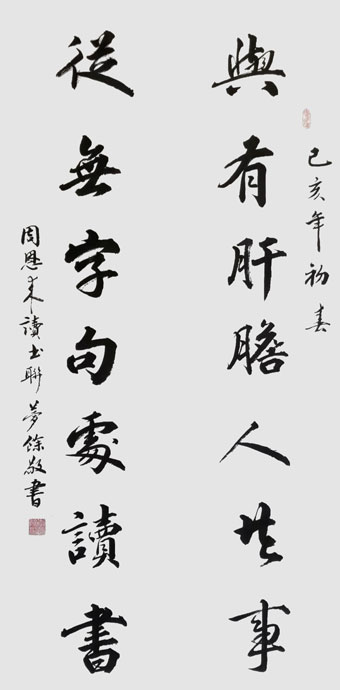 己亥年初春
與有肝膽人共事
從無字句處讀書
周恩来讀书聯 夢馀敬書